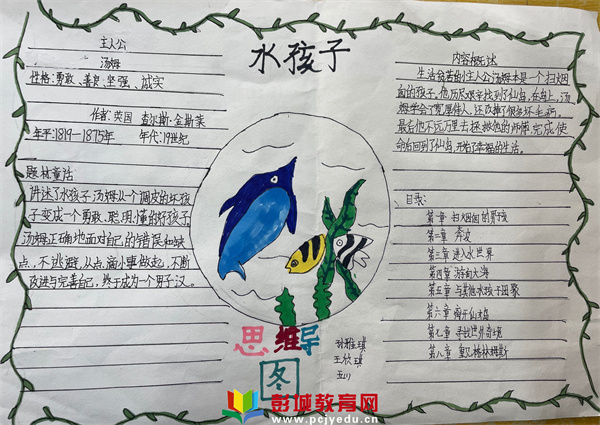 水孩子
主人公
汤姆
性格:勇敢、善良、坚强、诚实
作者:英国 查尔斯·金斯莱
年平:1819—1875年 年代:19世纪
题材:童话
讲述了水孩子汤姆从一个调皮的坏孩
子变成一个勇敢、聪明、懂的好孩子
汤姆正确地面对自己的错误和缺
点,不逃避,从点滴小事做起,不断
改进与完善自己,终于成为一个男子汉。
内容概述
生活贫苦的主人公汤姆本是一个扫烟
囱的孩子,他历尽艰辛找到了仙岛,在岛上,汤
姆学会了宽厚待人,还改掉了很多坏毛病。
最后他不远万里去拯救他的师傅,完成使
命后回到了仙岛,开始了幸福的生活。
目录:
第一章 扫烟囱的男孩
第二章 奔波
第三章 进入水世界
第四章 游向大海
第五章 与其他水孩子团聚
第六章 离开仙岛
第七章 寻找世外奇境
第八章 重见格林姆斯
思维导
图
王欣琪
彭城教育网
www.pcjyedu.cn